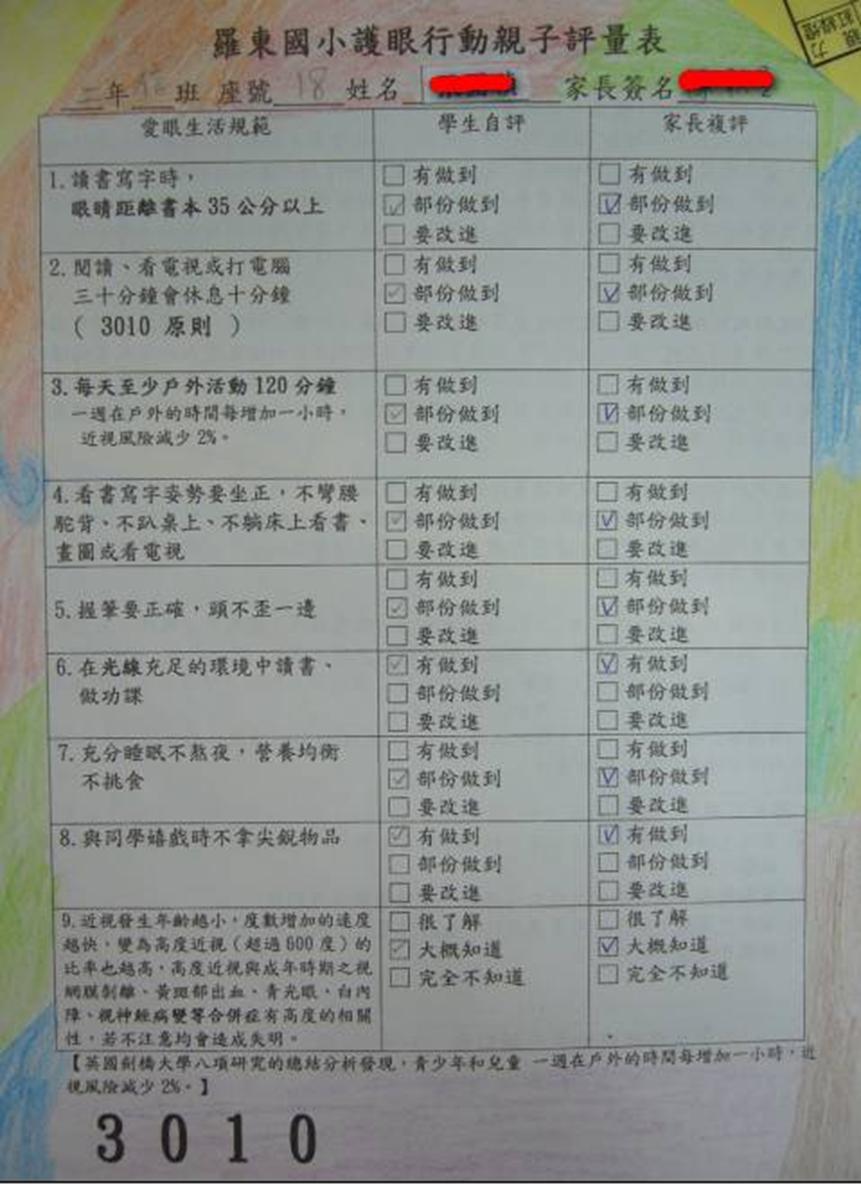 羅東國小護眼行動親子評量表
二年信班 座號18 姓名 家長簽名
愛眼生活規範 學生自評 家長複評
1.讀書寫字時，
眼睛距離書本35公分以上
□有做到
☑部份做到
□要改進
□有做到
☑部份做到
□要改進
2.閱讀、看電視或打電腦
三十分鐘會休息十分鐘
( 3010 原則 )
□有做到
☑部份做到
□要改進
□有做到
☑部份做到
□要改進
3.每天至少戶外活動120分鐘
一週在戶外的時間每增加一小時，
近視風險減少2%。
□有做到
☑部份做到
□要改進
□有做到
☑部份做到
□要改進
4.看書寫字姿勢要坐正，不彎腰
駝背、不趴桌上、不躺床上看書、
畫圖或看電視
□有做到
☑部份做到
□要改進
□有做到
☑部份做到
□要改進
5.握筆要正確，頭不歪一邊
□有做到
☑部份做到
□要改進
□有做到
☑部份做到
□要改進
6.在光線充足的環境中讀書、
做功課
☑有做到
□部份做到
□要改進
☑有做到
□部份做到
□要改進
7.充分睡眠不熬夜，營養均衡
不挑食
□有做到
☑部份做到
□要改進
□有做到
☑部份做到
□要改進
8.與同學嬉戲時不拿尖銳物品
☑有做到
□部份做到
□要改進
☑有做到
□部份做到
□要改進
9.近視發生年齡越小，度數增加的速度
越快，變為高度近視(超過600度)的
比率也越高，高度近視與成年時期之視
網膜剝離、黃斑部出血、青光眼、白內
障、視神經病變等合併症有高度的相關
性，若不注意均會造成失明。
□很了解
☑大概知道
□完全不知道
□很了解
☑大概知道
□完全不知道
【英國劍橋大學八項研究的總結分析發現，青少年和兒童 一週在戶外的時間每增加一小時，近
視風險減少2%。】
3010